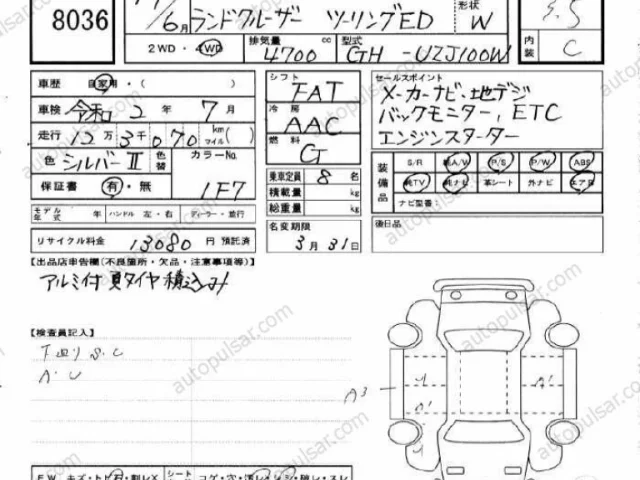 8036
6月 ランドクルーザー ツーリングED
形状 W
3.5
2WD・4WD 排気量 4700 cc 型式 GH-UZJ100W
内装 C
車歴 自家用・( )
車検 令和 2年 7月
走行 12万3千070 km(マイル)
色 シルバーⅡ 色替 カラーNo. 1F7
保証書 有・無
モデル年式 年 ハンドル 左・右 ディーラー・並行
リサイクル料金 13080 円 預託済
シフト FAT
冷房 AAC
燃料 G
乗車定員 8 名
積載量 kg
総重量 kg
名変期限
3月31日
セールスポイント
メーカーナビ・地デジ
バックモニター, ETC
エンジンスターター
装備品 S/R 純A/W P/S P/W ABS
純TV 純ナビ 革シート 外ナビ エアB
ナビ型番:
後日品
【出品店申告欄(不良箇所・欠品・注意事項等)】
アルミ付夏タイヤ積込み
【検査員記入】
下回りS.C
A.U
A3
A'
A'
autopulsar.com
autopulsar.com
autopulsar.com
autopulsar.com
autopulsar.com